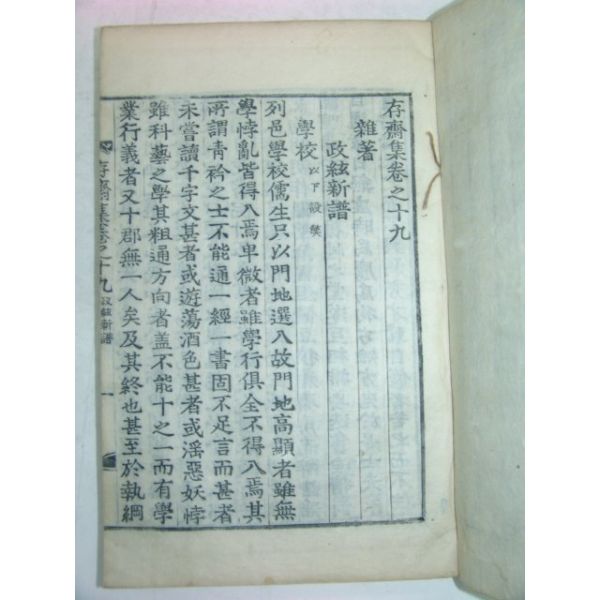 存齋集卷之十九
雜著
政絃新譜
學校 以下設弊
列邑學校儒生只以門地選入故門地高顯者雖無
學悖亂皆得入焉卑微者雖學行俱全不得入焉其
所謂靑衿之士不能通一經一書固不足言而甚者
未嘗讀千字文甚者或遊蕩酒色甚者或淫惡妖悖
雖科藝之學其粗通方向者盖不能十之一而有學
業行義者又十郡無一人矣及其終也甚至於執綱
存齋集卷之十九 政絃新譜 一